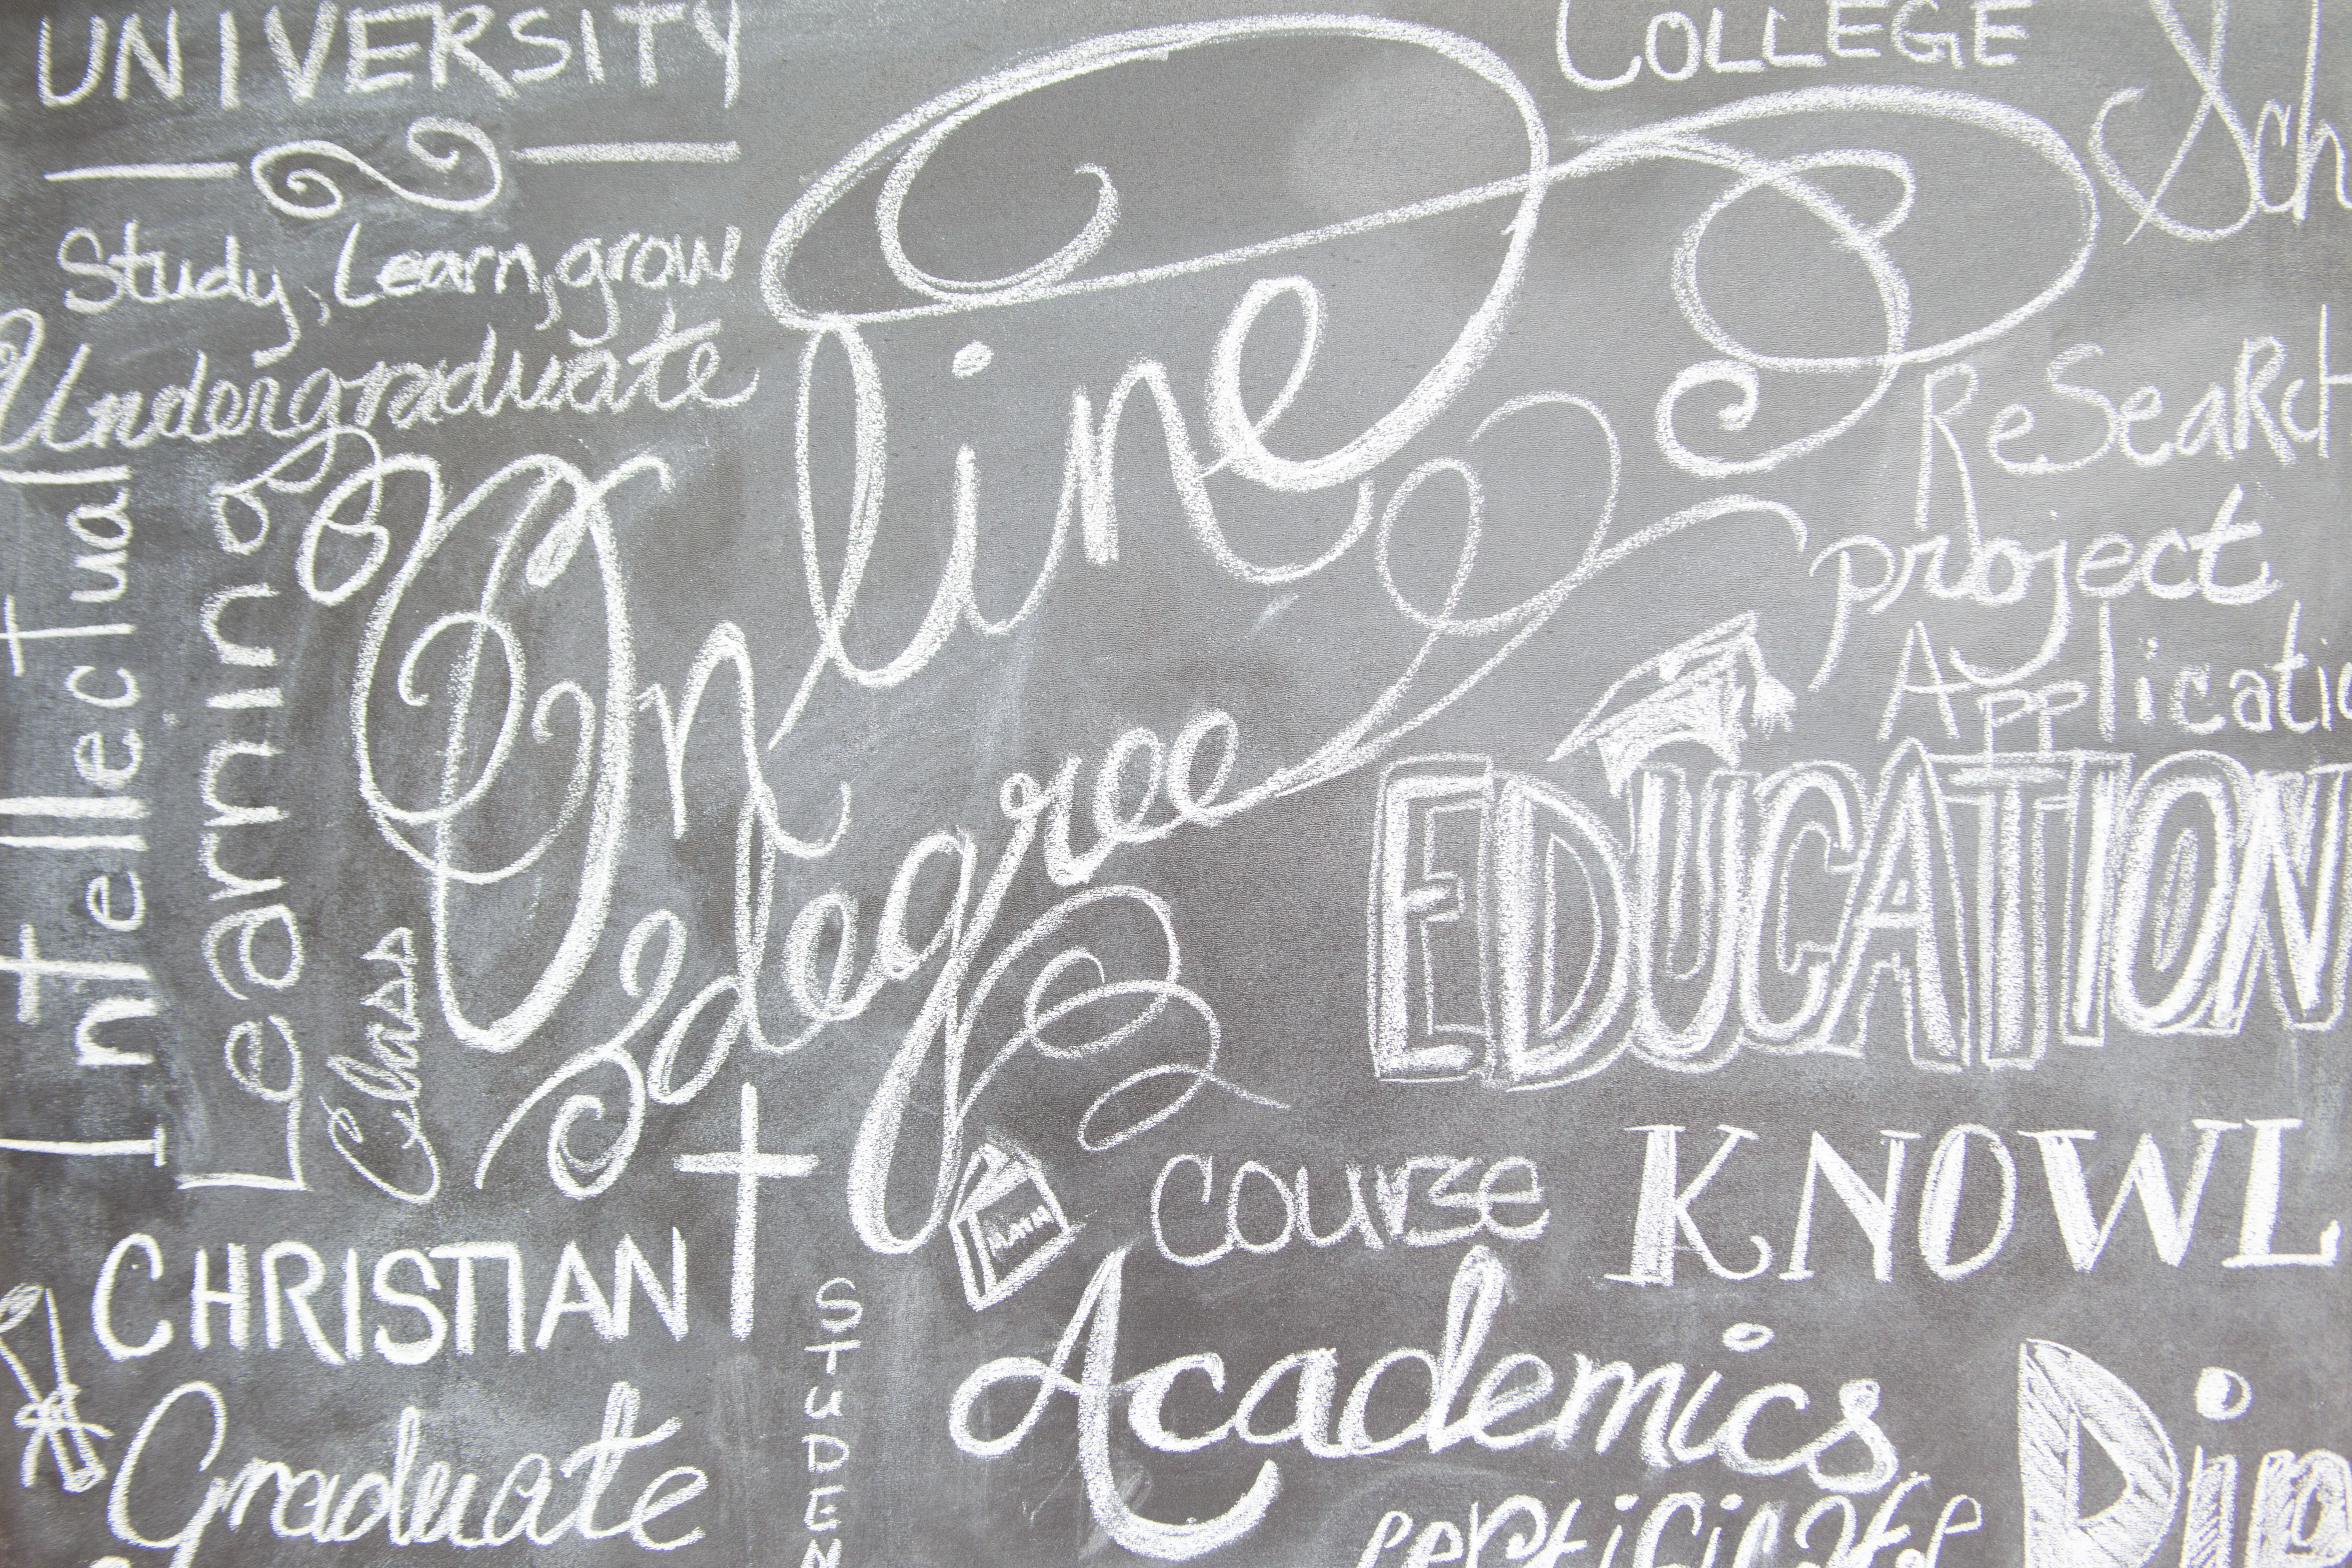 UNIVERSITY
COLLEGE
Sch
Study, Learn, grow
Undergraduate
Intellectual
Learning
Class
Online
degree
ReSearch
project
Applicatio
EDUCATION
MATH
course
KNOWL
CHRISTIAN
Graduate
STUDEN
Academics
certificate
Dip